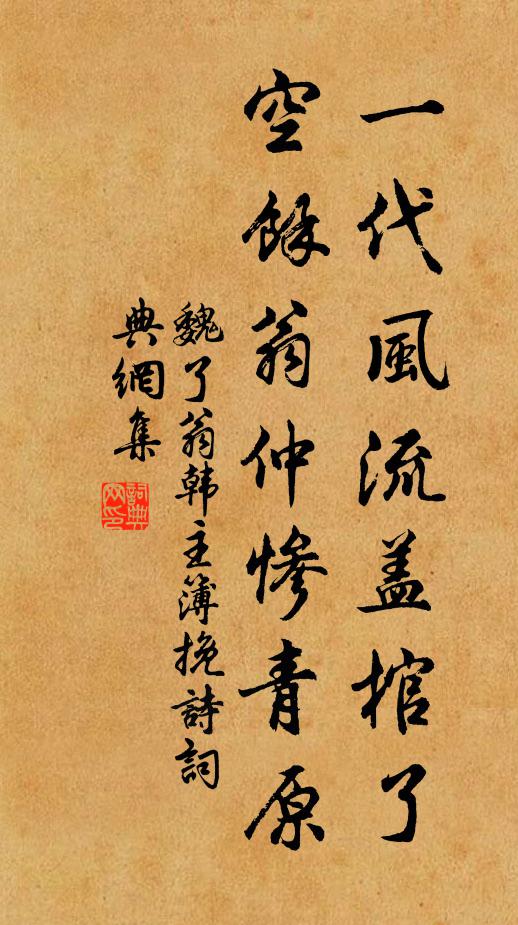 一代風流盖棺了
空餘翁仲慘青原
魏了翁韩主簿挽詩詞
典網集
詞典
网印